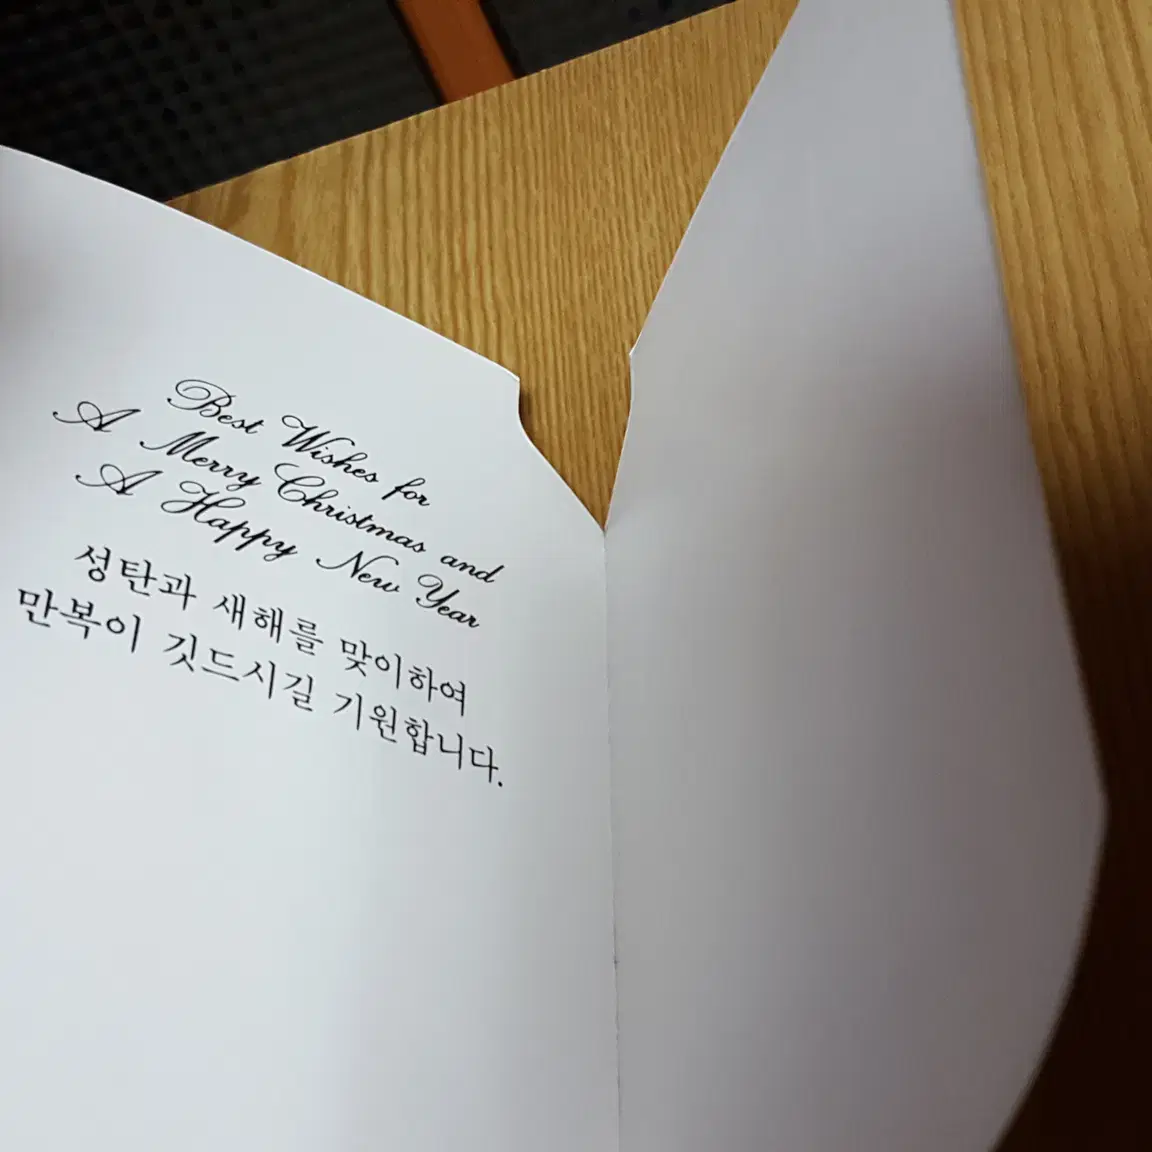 Best Wishes for
A Merry Christmas and
A Happy New Year
성탄과 새해를 맞이하여
만복이 깃드시길 기원합니다.